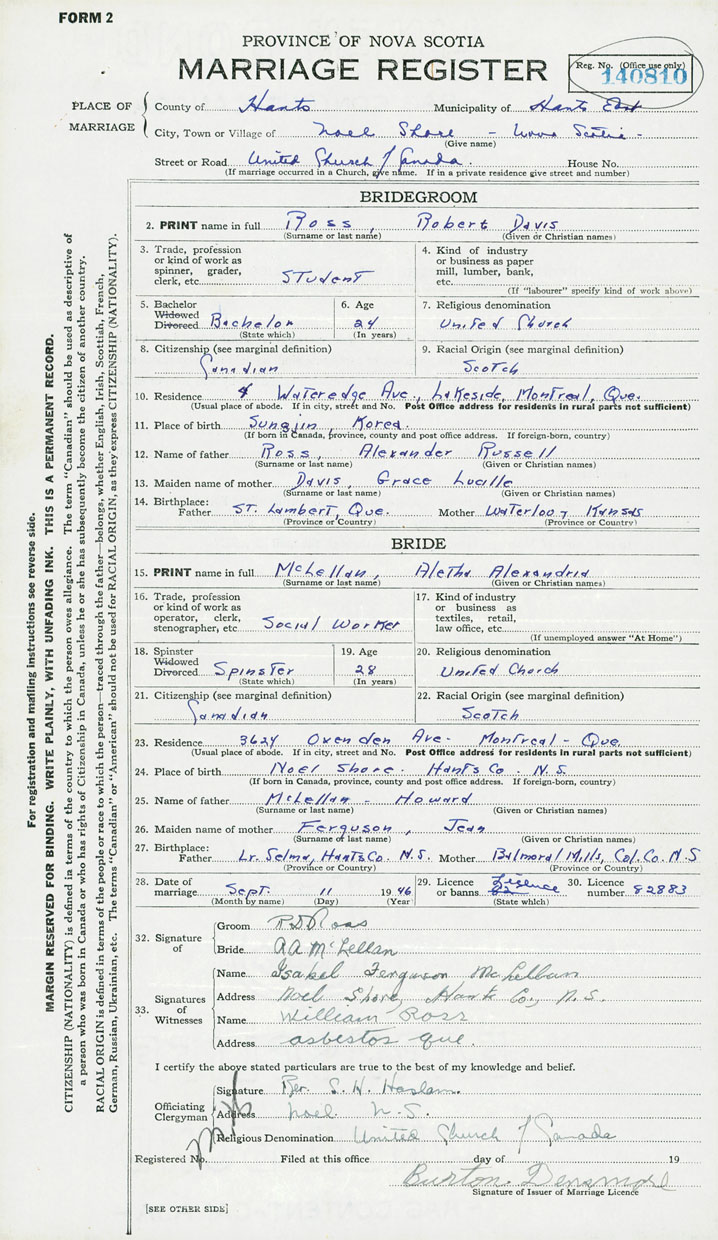 FORM 2
PROVINCE OF NOVA SCOTIA
MARRIAGE REGISTER
Reg. No. (Office use only)
140810
PLACE OF MARRIAGE
County of Hants Municipality of Hants East
City, Town or Village of Noel Shore - Nova Scotia -
(Give name)
Street or Road United Church of Canada. House No.
(If marriage occurred in a Church, give name. If in a private residence give street and number)
BRIDEGROOM
2. PRINT name in full Ross, Robert Davis
(Surname or last name) (Given or Christian names)
3. Trade, profession or kind of work as spinner, grader, clerk, etc. Student
4. Kind of industry or business as paper mill, lumber, bank, etc.
(If "labourer" specify kind of work above)
5. Bachelor Widowed Divorced Bachelor
(State which)
6. Age 24
(In years)
7. Religious denomination
United Church
8. Citizenship (see marginal definition)
Canadian
9. Racial Origin (see marginal definition)
Scotch
10. Residence 4 Wateredge Ave., Lakeside, Montreal, Que.
(Usual place of abode. If in city, street and No. Post Office address for residents in rural parts not sufficient)
11. Place of birth Sungjin Korea.
(If born in Canada, province, county and post office address. If foreign-born, country)
12. Name of father Ross, Alexander Russell
(Surname or last name) (Given or Christian names)
13. Maiden name of mother Davis, Grace Lucille
(Surname or last name) (Given or Christian names)
14. Birthplace:
Father St. Lambert, Que. Mother Waterloo, Kansas
(Province or Country) (Province or Country)
BRIDE
15. PRINT name in full McLellan, Aletha Alexandria
(Surname or last name) (Given or Christian names)
16. Trade, profession or kind of work as operator, clerk, stenographer, etc. Social Worker
17. Kind of industry or business as textiles, retail, law office, etc.
(If unemployed answer "At Home")
18. Spinster Widowed Divorced Spinster
(State which)
19. Age 28
(In years)
20. Religious denomination
United Church
21. Citizenship (see marginal definition)
Canadian
22. Racial Origin (see marginal definition)
Scotch
23. Residence 3624 Oxenden Ave. Montreal - Que.
(Usual place of abode. If in city, street and No. Post Office address for residents in rural parts not sufficient)
24. Place of birth Noel Shore. Hants Co. N.S.
(If born in Canada, province, county and post office address. If foreign-born, country)
25. Name of father McLellan - Howard
(Surname or last name) (Given or Christian names)
26. Maiden name of mother Ferguson, Jean
(Surname or last name) (Given or Christian names)
27. Birthplace:
Father Lr. Selma, Hants Co. N.S. Mother Balmoral Mills, Col. Co. N.S
(Province or Country) (Province or Country)
28. Date of marriage Sept. 11 1946
(Month by name) (Day) (Year)
29. Licence or banns Lisence
(State which)
30. Licence number 82883
32. Signature of
Groom R D Ross
Bride A A McLellan
33. Signatures of Witnesses
Name Isabel Ferguson McLellan
Address Noel Shore, Hants Co., N.S.
Name William Ross
Address asbestos que.
I certify the above stated particulars are true to the best of my knowledge and belief.
Officiating Clergyman
Signature Rev. S. H. Haslam.
Address Noel N.S.
Religious Denomination United Church of Canada
Registered No. Filed at this office day of 19
Burton Densmore
Signature of Issuer of Marriage Licence
[SEE OTHER SIDE]
For registration and mailing instructions see reverse side.
MARGIN RESERVED FOR BINDING. WRITE PLAINLY, WITH UNFADING INK. THIS IS A PERMANENT RECORD.
CITIZENSHIP (NATIONALITY) is defined in terms of the country to which the person owes allegiance. The term "Canadian" should be used as descriptive of
a person who was born in Canada or who has rights of Citizenship in Canada, unless he or she has subsequently become the citizen of another country.
RACIAL ORIGIN is defined in terms of the people or race to which the person—traced through the father—belongs, whether English, Irish, Scottish, French,
German, Russian, Ukrainian, etc. The terms "Canadian" or "American" should not be used for RACIAL ORIGIN, as they express CITIZENSHIP (NATIONALITY).